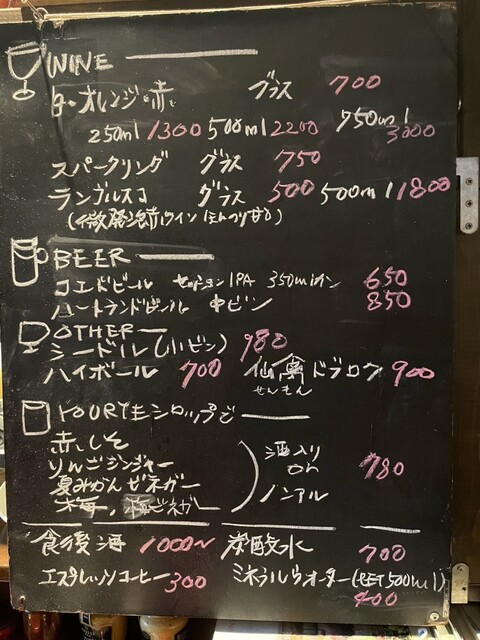 WINE
白・オレンジ・赤 グラス 700
250ml 1300 500ml 2200 750ml 3000
スパークリング グラス 750
ランブルスコ グラス 500 500ml 1800
(微発泡赤ワイン ほんのり甘口)
BEER
コエドビール セッションIPA 350mlカン 650
ハートランドビール 中ビン 850
OTHER
シードル(小ビン) 980
ハイボール 700 仙禽ドブロク 900
せんきん
シロップで
赤しそ
りんごジンジャー
夏みかんビネガー
梅、梅ビネガー
酒入り
or
ノンアル
780
食後酒 1000〜 炭酸水 700
エスプレッソコーヒー 300 ミネラルウォーター(PET500ml)
400